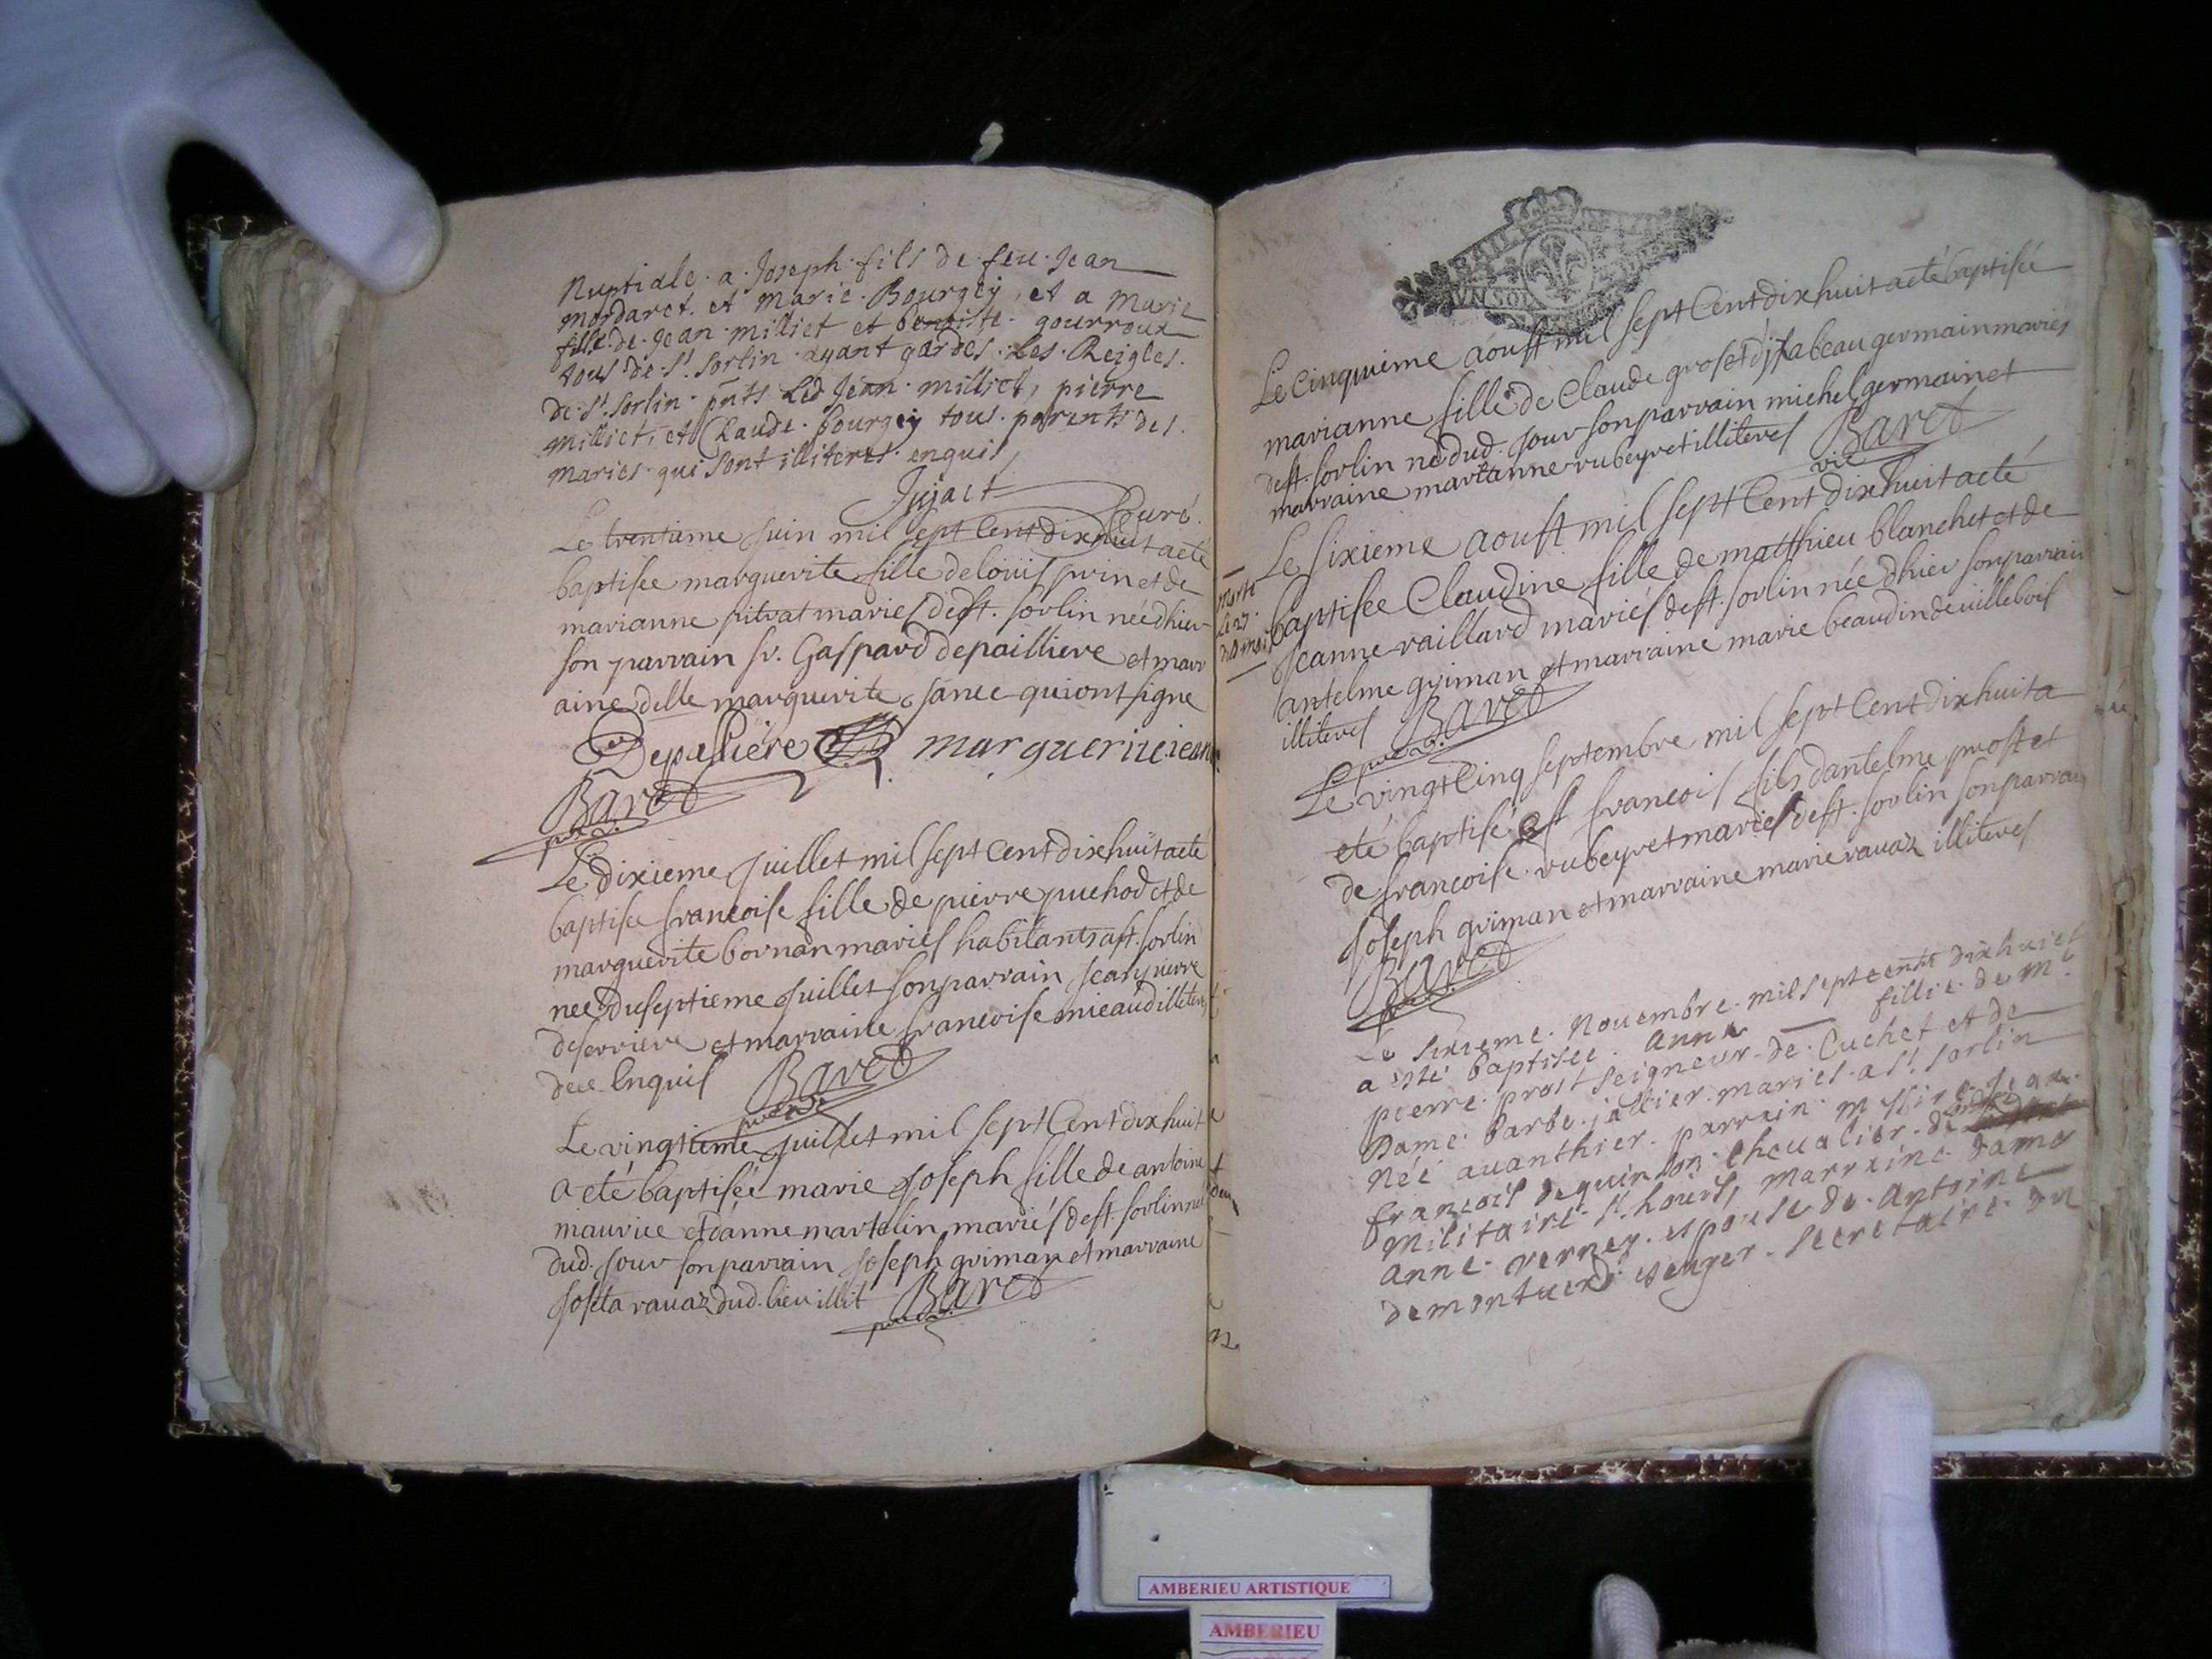 Nuptiale a Joseph fils de feu Jean
mordaret et Marie Bourgey, et a Marie
fille de Jean milliet et benoiste gourroux
tous de St. Sorlin ayant gardes Les Reigles
de St. Sorlin pnts Led Jean milliet, pierre
milliet, et Claude bourgey tous parents des
maries qui sont illiteres enquis
Jujact Curé
Le trentieme juin mil sept Cent dixhuit acté
baptisee marguerite fille de louis prin et de
marianne maries de st. sorlin née dhier
son parrain sr. Gaspard depailliere et marr
aine dlle marguerite janee qui ont signe
Depalliere marguerite jean
Baret
Le dixieme juillet mil sept cent dixhuit acté
baptisee francoise fille de pierre puchod et de
marguerite bornan mariés habitants a st. sorlin
née du septieme juillet son parrain jean pierre
deserriere et marraine francoise micaud illiteres
de ce Enquis Baret
Le vingtieme juillet mil sept Cent dixhuit
a eté baptisée marie Joseph fille de antoine
maurice et anne martelin mariés de st. sorlin née
dud. jour son parrain joseph griman et marraine
josèta ravaz dud. lieu illit Baret
UN SOL
Le cinquieme aoust mil sept Cent dixhuit acté baptisée
marianne fille de Claude gros et disabeau germain mariés
de st. sorlin né dud. jour son parrain michel germain et
marraine marianne rubeyret illiteres Baret
vic
Le sixieme aoust mil sept Cent dixhuit acté
morte
Le 27.
dud mois
baptisée Claudine fille de matthieu blanchet et de
Jeanne raillard mariés de st. sorlin née dhier son parrain
antelme griman et marraine marie beaudin de villebois
illiteres Baret
Le vingt Cinq septembre mil sept Cent dixhuit a
eté baptisé francois fils dantelme prost et
de francoise rubeyret mariés de st. sorlin son parrain
Joseph griman et marraine marie ravaz illiteres
Baret
Le sixieme Nouembre mil sept cents dixhuict
a esté baptisée Anne fillie de Mr.
pierre prost seigneur de Cuchet et de
Dame barbe jallier mariés a St. Sorlin
Née auanthier parrain Messire Jean
francois dequinson cheualier de lordre
militaire St. Louis, marraine Dame
Anne verney espouse de Antoine
demontuerd escuyer Secretaire du
AMBERIEU ARTISTIQUE
AMBERIEU